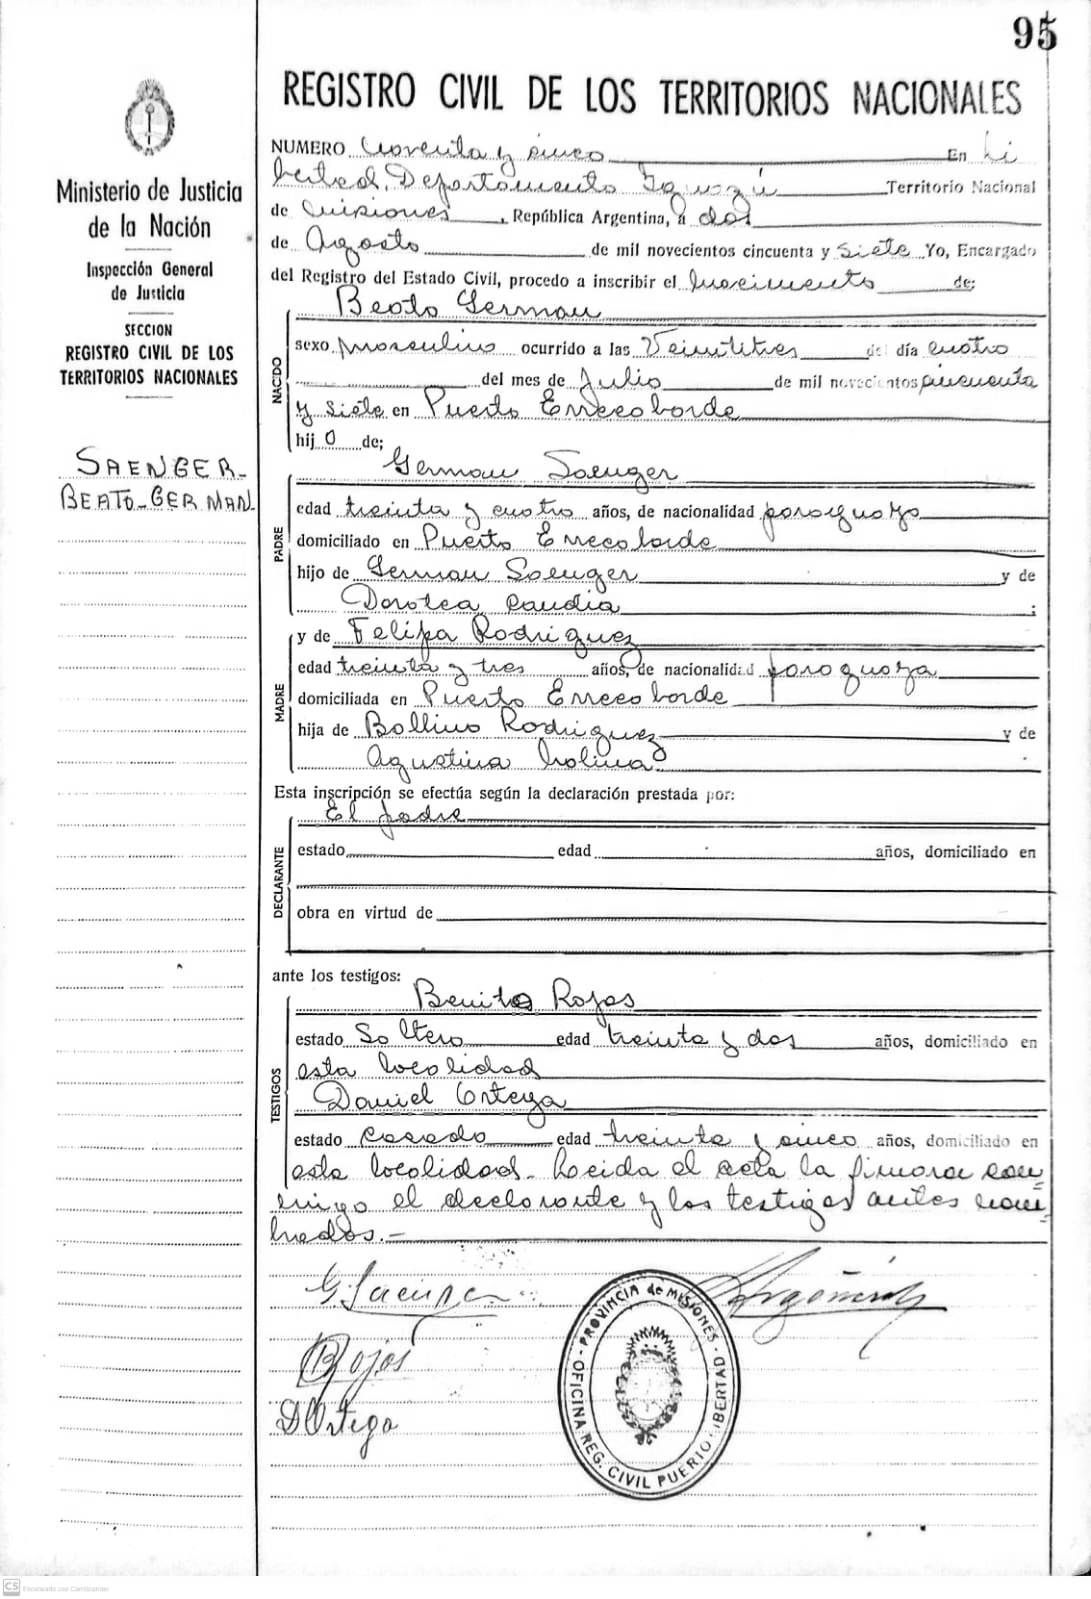 95
REGISTRO CIVIL DE LOS TERRITORIOS NACIONALES
Ministerio de Justicia
de la Nación
Inspección General
de Justicia
SECCION
REGISTRO CIVIL DE LOS
TERRITORIOS NACIONALES
SAENGER-
BEATO-GERMAN-
NUMERO Noventa y cinco En Li
bertad, Departamento Iguazú Territorio Nacional
de Misiones, República Argentina, a dos
de Agosto de mil novecientos cincuenta y siete Yo, Encargado
del Registro del Estado Civil, procedo a inscribir el Nacimiento de:
NACIDO
Beato German
sexo masculino ocurrido a las Veintitres del día cuatro
del mes de Julio de mil novecientos cincuenta
y siete en Puerto Errecaborde
hij o de;
PADRE
German Saenger
edad treinta y cuatro años, de nacionalidad paraguayo
domiciliado en Puerto Errecaborde
hijo de German Saenger y de
Dorotea Caudia;
MADRE
y de Felipa Rodriguez
edad treinta y tres años, de nacionalidad paraguaya
domiciliada en Puerto Errecaborde
hija de Bollino Rodriguez y de
Agustina Molina
Esta inscripción se efectúa según la declaración prestada por:
DECLARANTE
El padre
estado edad años, domiciliado en
obra en virtud de
ante los testigos:
TESTIGOS
Benito Rojas
estado Soltero edad treinta y dos años, domiciliado en
esta localidad
Daniel Ortega
estado Casado edad treinta y cinco años, domiciliado en
esta localidad- Leida el acta la firmara con
migo el declarante y los testigos antes nom=
brados.-
G. Saenger
BRojas
DOrtega
OFICINA REG. CIVIL PUERTO LIBERTAD - PROVINCIA de MISIONES -
CS Escaneado con CamScanner